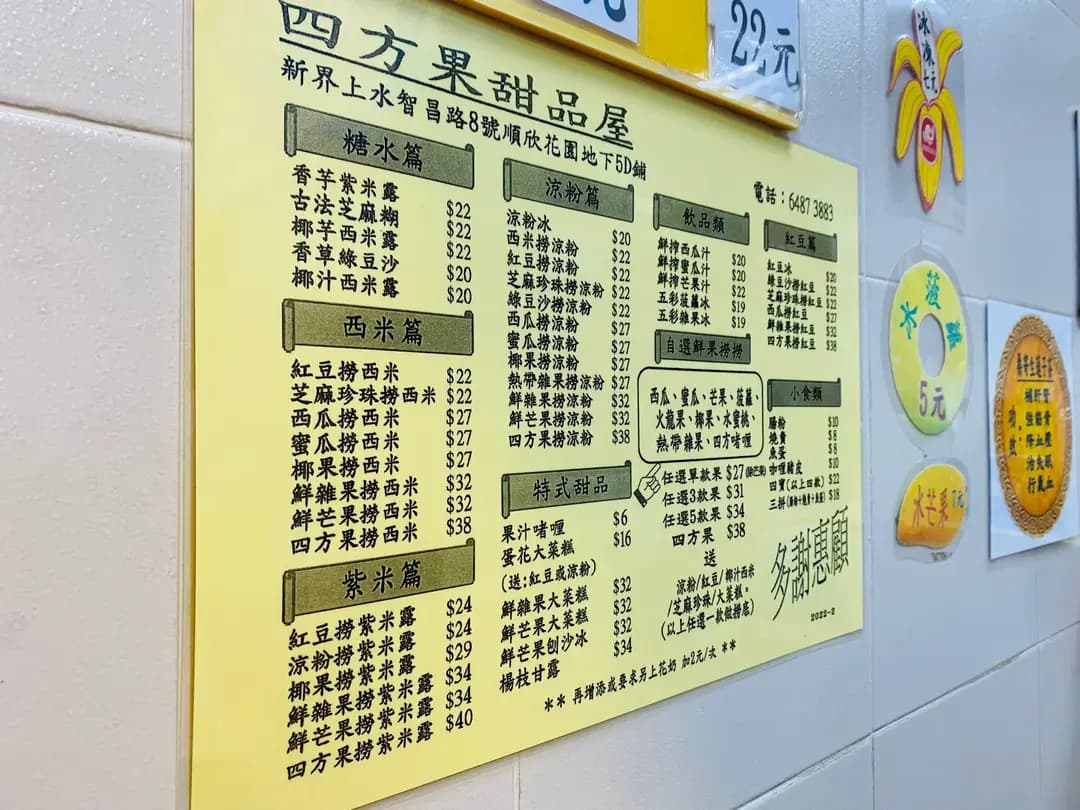 22元
四方果甜品屋
新界上水智昌路8號順欣花園地下5D鋪
電話：6487 3883
糖水篇
香芋紫米露 $22
古法芝麻糊 $22
椰芋西米露 $22
香草綠豆沙 $20
椰汁西米露 $20
西米篇
紅豆撈西米 $22
芝麻珍珠撈西米 $22
西瓜撈西米 $27
蜜瓜撈西米 $27
椰果撈西米 $27
鮮雜果撈西米 $32
鮮芒果撈西米 $32
四方果撈西米 $38
紫米篇
紅豆撈紫米露 $24
涼粉撈紫米露 $24
椰果撈紫米露 $29
鮮雜果撈紫米露 $34
鮮芒果撈紫米露 $34
四方果撈紫米露 $40
涼粉篇
涼粉冰 $20
西米撈涼粉 $22
紅豆撈涼粉 $22
芝麻珍珠撈涼粉 $22
綠豆沙撈涼粉 $22
西瓜撈涼粉 $27
蜜瓜撈涼粉 $27
椰果撈涼粉 $27
熱帶雜果撈涼粉 $27
鮮雜果撈涼粉 $32
鮮芒果撈涼粉 $32
四方果撈涼粉 $38
特式甜品
果汁啫喱 $6
蛋花大菜糕 $16
(送:紅豆或涼粉)
鮮雜果大菜糕 $32
鮮芒果大菜糕 $32
鮮芒果刨沙冰 $32
楊枝甘露 $34
飲品類
鮮搾西瓜汁 $20
鮮搾蜜瓜汁 $20
鮮搾芒果汁 $22
五彩菠蘿冰 $19
五彩雜果冰 $19
自選鮮果撈撈
西瓜、蜜瓜、芒果、菠蘿、
火龍果、椰果、水蜜桃、
熱帶雜果、四方啫喱
任選單款果 $27
任選3款果 $31
任選5款果 $34
四方果 $38
送
涼粉/紅豆/椰汁西米
/芝麻珍珠/大菜糕。
(以上任選一款做撈底)
紅豆篇
紅豆冰 $20
綠豆沙撈紅豆 $22
芝麻珍珠撈紅豆 $22
西瓜撈紅豆 $27
鮮雜果撈紅豆 $32
四方果撈紅豆 $38
小食類
腸粉 $10
燒賣 $8
魚蛋 $8
咖喱豬皮 $10
四寶(以上四款) $22
三拼 $18
多謝惠顧
2022-2
** 再增添或要求另上花奶 加2元/次 **
冰凍七元
冰菠蘿
5元
冰芒果 7元
功效：
補肝腎
強筋骨
降血壓
治失眠
行氣血